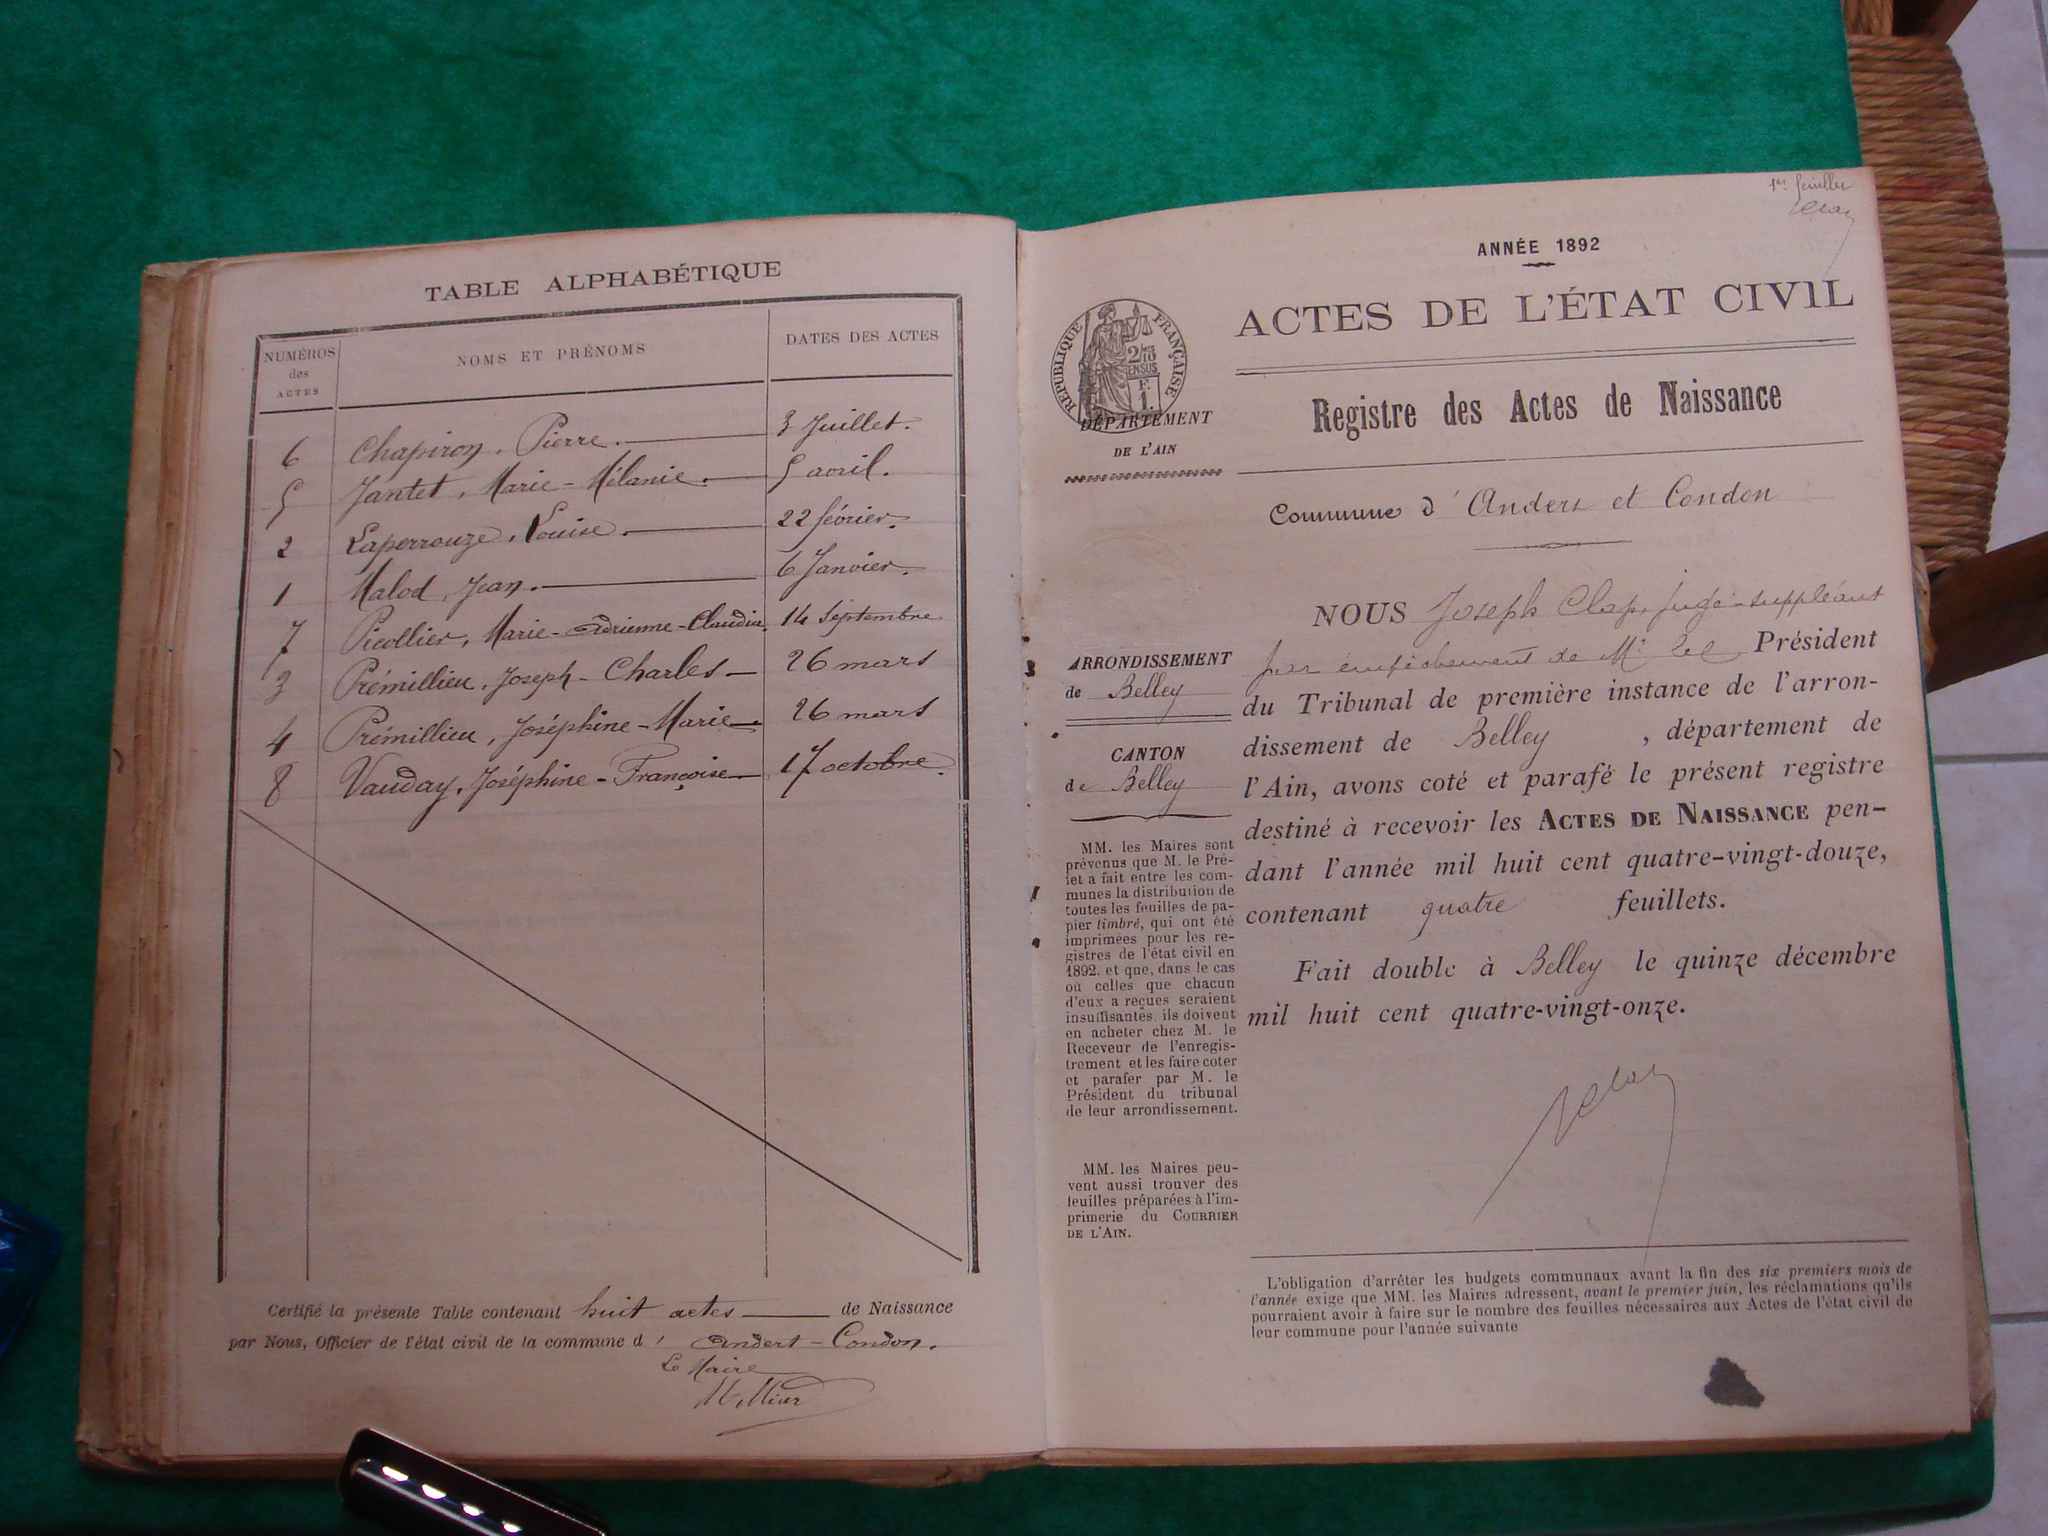 TABLE ALPHABÉTIQUE
NUMÉROS des ACTES
NOMS ET PRÉNOMS
DATES DES ACTES
6 Chapiron, Pierre. 3 Juillet.
5 Jantet, Marie-Mélanie. 5 avril.
2 Laperrouze, Louise. 22 février.
1 Malod, Jean. 6 Janvier.
7 Picollier, Marie-Adrienne-Claudia. 14 Septembre
3 Prémillieu, Joseph-Charles 26 mars
4 Prémillieu, Joséphine-Marie 26 mars
8 Vauday, Joséphine-Françoise 17 octobre.
Certifié la présente Table contenant huit actes de Naissance
par Nous, Officier de l'état civil de la commune d' Andert-Condon.
Le Maire
1er feuillet
ANNÉE 1892
ACTES DE L'ÉTAT CIVIL
RÉPUBLIQUE FRANÇAISE
2/10 EN SUS
F.
1.
DÉPARTEMENT
DE L'AIN
Registre des Actes de Naissance
Commune d'Andert et Condon
ARRONDISSEMENT
de Belley
CANTON
de Belley
MM. les Maires sont
prévenus que M. le Pré-
fet a fait entre les com-
munes la distribution de
toutes les feuilles de pa-
pier timbré, qui ont été
imprimées pour les re-
gistres de l'état civil en
1892. et que, dans le cas
où celles que chacun
d'eux a reçues seraient
insuffisantes, ils doivent
en acheter chez M. le
Receveur de l'enregis-
trement et les faire coter
et parafer par M. le
Président du tribunal
de leur arrondissement.
MM. les Maires peu-
vent aussi trouver des
feuilles préparées à l'im-
primerie du COURRIER
DE L'AIN.
NOUS Joseph Clap, juge-suppléant
par empêchement de Mr le Président
du Tribunal de première instance de l'arron-
dissement de Belley, département de
l'Ain, avons coté et parafé le présent registre
destiné à recevoir les ACTES DE NAISSANCE pen-
dant l'année mil huit cent quatre-vingt-douze,
contenant quatre feuillets.
Fait double à Belley le quinze décembre
mil huit cent quatre-vingt-onze.
L'obligation d'arrêter les budgets communaux avant la fin des six premiers mois de
l'année exige que MM. les Maires adressent, avant le premier juin, les réclamations qu'ils
pourraient avoir à faire sur le nombre des feuilles nécessaires aux Actes de l'état civil de
leur commune pour l'année suivante